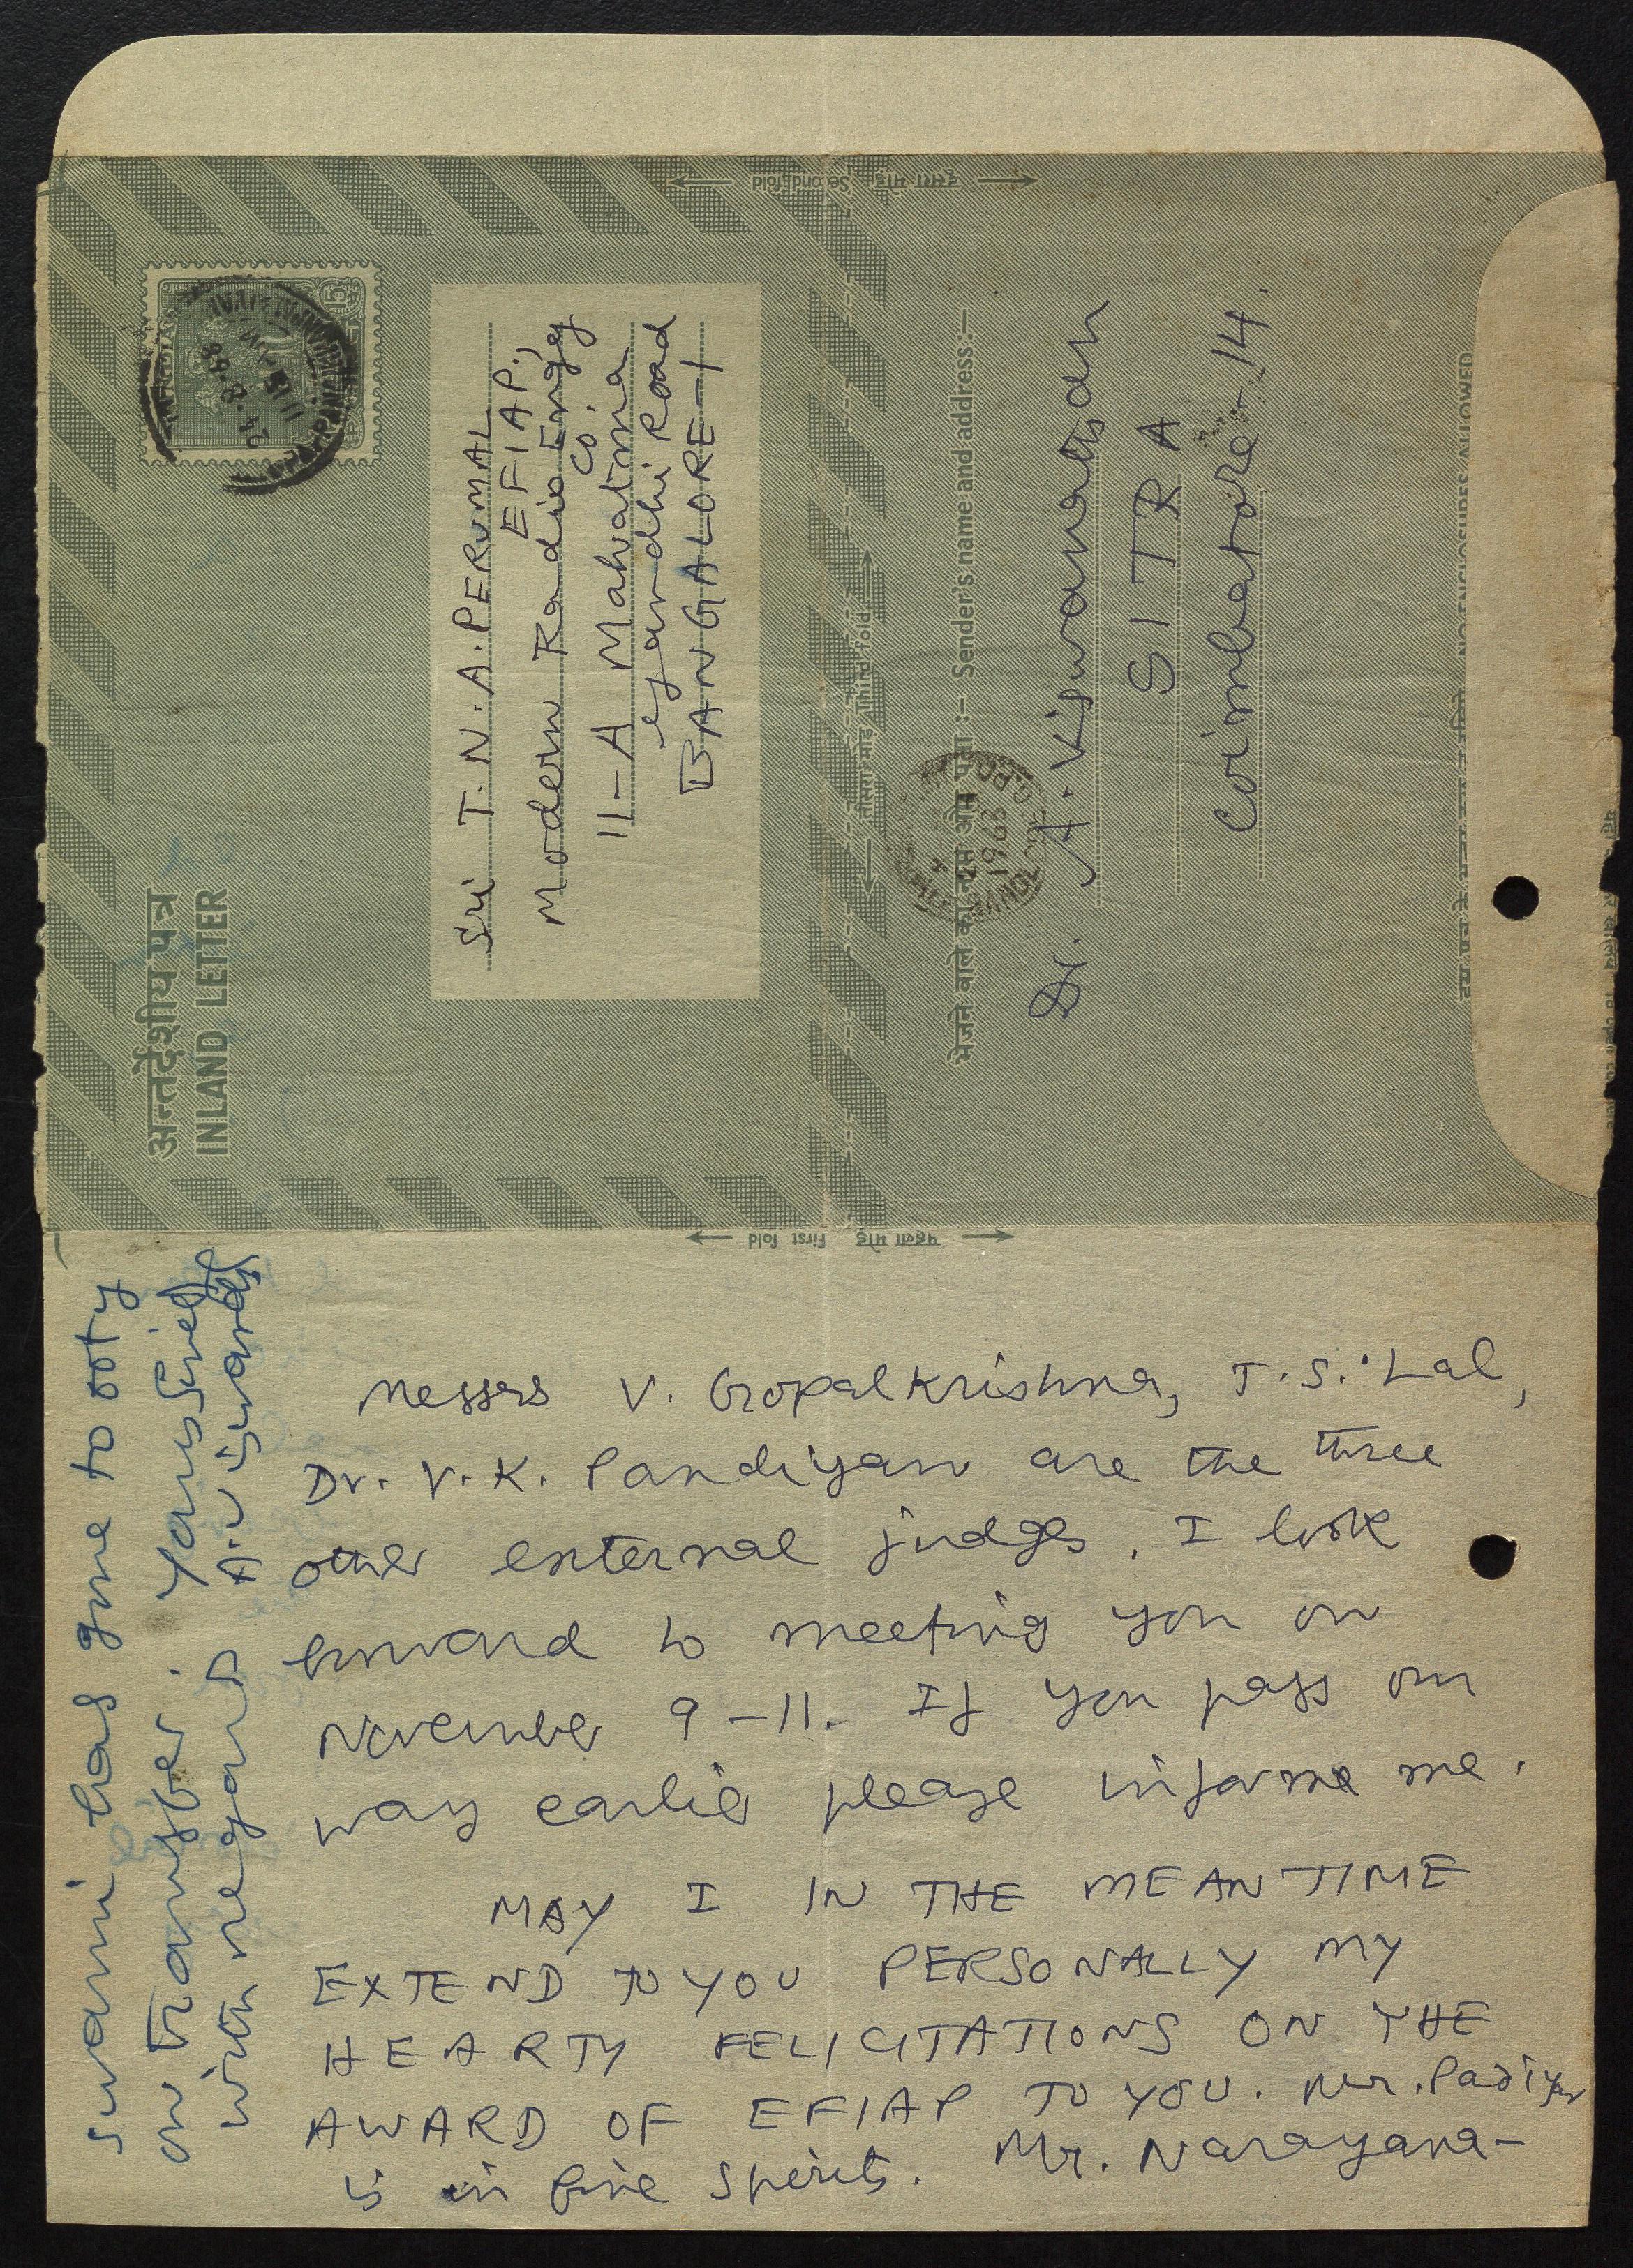 अन्तर्देशीय पत्र
INLAND LETTER
INDIA
24.8.68
Sri T.N.A. PERUMAL
EFIAP.,
Modern Radio Engg
Co.
11-A Mahatma
gandhi Road
BANGALORE-1
दूसरा मोड़ Second fold
तीसरा मोड़ Third fold
भेजने वाले का नाम और पता :- Sender's name and address:-
A. Viswanathan
SITRA
Coimbatore-14.
1968
G.P.O.
NO ENCLOSURES ALLOWED
पहला मोड़ First fold
Messrs V. Gopalkrishna, T.S. Lal,
Dr. V.K. Pandiyan are the three
other external judges. I look
forward to meeting you on
November 9-11. If you pass our
way earlier please inform me.
MAY I IN THE MEANTIME
EXTEND TO YOU PERSONALLY MY
HEARTY FELICITATIONS ON THE
AWARD OF EFIAP TO YOU. Mr. Padiyar
is in fine spirits. Mr. Narayana-
swami has gone to ooty
on transfer.
with regards
Yours Sincely